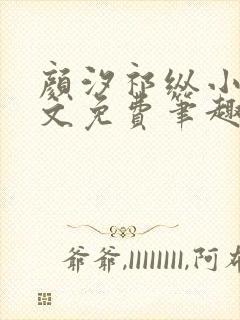 颜汐祁纵小
文免费笔趣
爷爷,llllllll,阿布